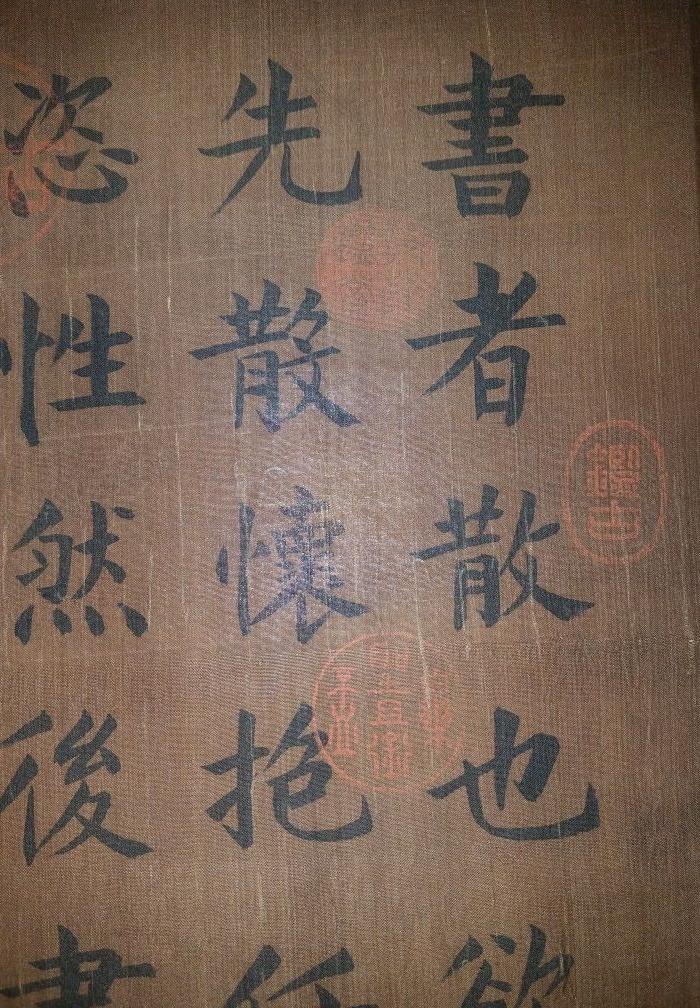 書者散也欲
先散懷抱任
恣性然後書
鑑古